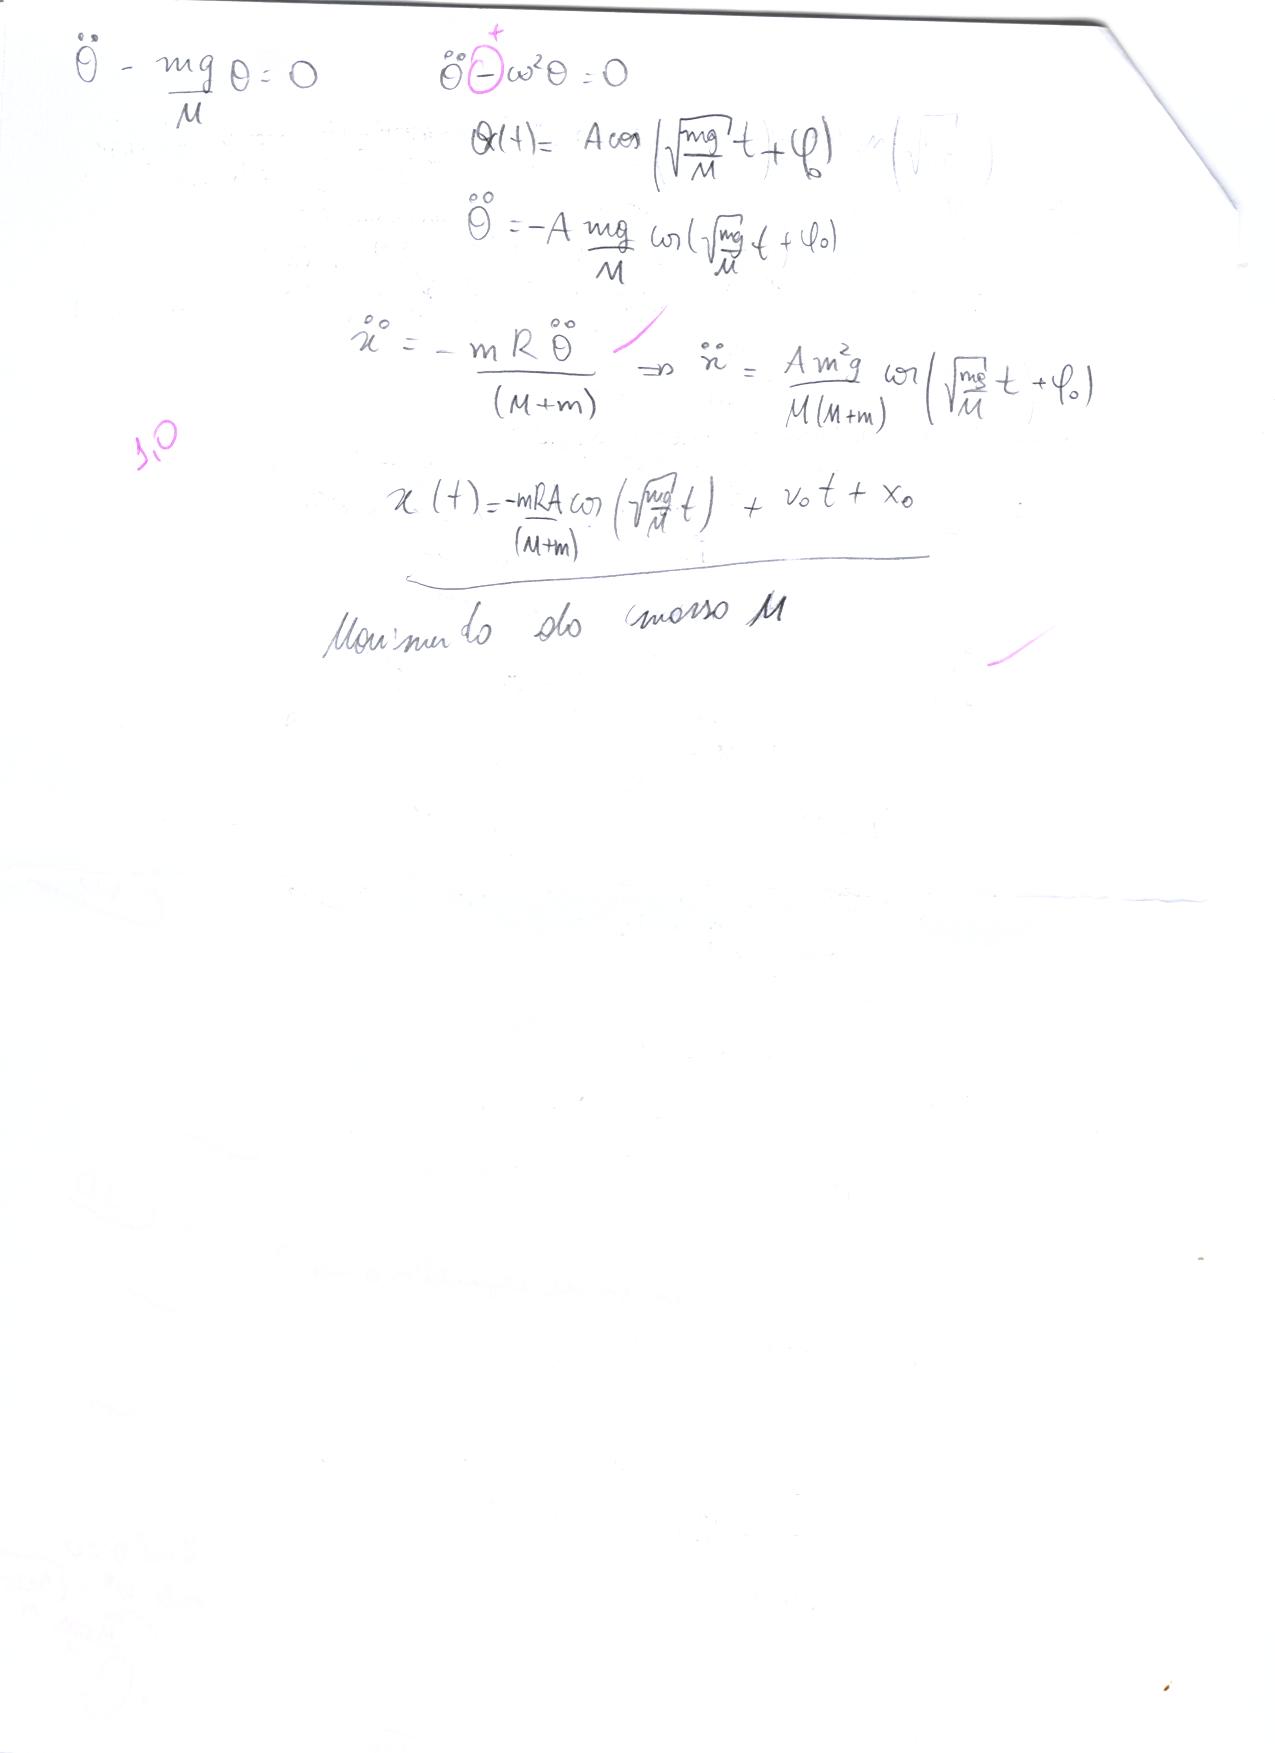 θ̈ - mg/M θ = 0    θ̈ - ω²θ = 0
+
θ(t) = A cos(√(mg/M) t + φ₀)
θ̈ = -A mg/M cos(√(mg/M) t + φ₀)
ẍ = - m R θ̈/(M+m) ⇒ ẍ = A m²g/M(M+m) cos(√(mg/M) t + φ₀)
1,0
x(t) = -mRA/(M+m) cos(√(mg/M) t) + v₀t + x₀
Movimento da massa M